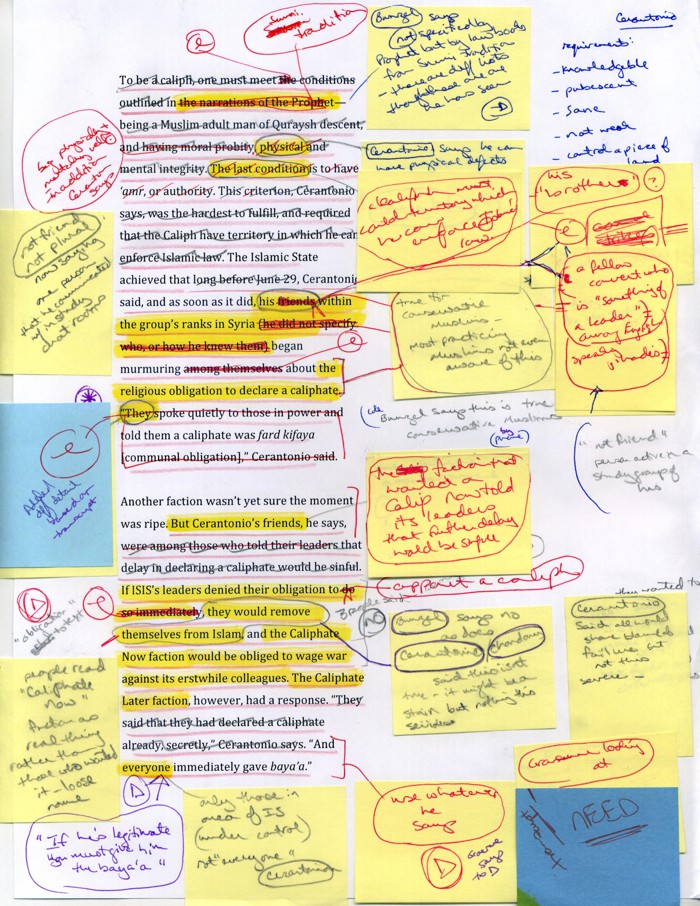 Sunni
tradition
e
Bunzel says
not specified by
Prophet but by law books
from Sunni tradition
- there are diff lists
though these are one
he has seen
Cerantonio
requirements:
- knowledgeable
- pubescent
- sane
- not weak
- control a piece of
land
To be a caliph, one must meet the conditions
outlined in the narrations of the Prophet—
being a Muslim adult man of Quraysh descent,
and having moral probity, physical and
mental integrity. The last condition is to have
‘amr, or authority. This criterion, Cerantonio
says, was the hardest to fulfill, and required
that the Caliph have territory in which he can
enforce Islamic law. The Islamic State
achieved that long before June 29, Cerantoni
said, and as soon as it did, his friends within
the group’s ranks in Syria (he did not specify
who, or how he knew them), began
murmuring among themselves about the
religious obligation to declare a caliphate.
“They spoke quietly to those in power and
told them a caliphate was fard kifaya
[communal obligation],” Cerantonio said.
Another faction wasn’t yet sure the moment
was ripe. But Cerantonio’s friends, he says,
were among those who told their leaders that
delay in declaring a caliphate would be sinful.
If ISIS’s leaders denied their obligation to do
so immediately, they would remove
themselves from Islam, and the Caliphate
Now faction would be obliged to wage war
against its erstwhile colleagues. The Caliphate
Later faction, however, had a response. “They
said that they had declared a caliphate
already, secretly,” Cerantonio says. “And
everyone immediately gave baya’a.”
in addition
Cerantonio
says
Cerantonio says he can
have physical defects
caliph must
hold territory which
he can
enforce Islamic
law
his
"brothers"
?
e
a fellow
convert who
is "something of
a leader"
among English
speaking
jihadis
not friend
not plural
now saying
one person
that he communicated
w/ in study
chat rooms
true for
conservative
muslims -
most practicing
Muslims not even
aware of this
e
Bunzel says this is true
conservative Muslims
(by phone)
"not friend"
person active in a
study group of
his
e
Added
detail
transcript
The faction that
wanted a
Calip now told
its leaders
that further delay
would be sinful
appoint a caliph
D
e
"obligation"
to text
3 people said
no
Bunzel says no
as does
Cerantonio
Chaudary
said this isn't
true - it might be a
stain but nothing this
serious
they wanted to
Cerantonio
said all would
share blame for
failure but
not this
severe -
people read
"Caliphate
now"
faction as
real thing
rather than
those who wanted
it - loose
name
D
"If he's legitimate
you must give him
the baya'a"
only those in
area of IS
(under control)
not "everyone"
Cerantonio
use whatever
he
says
D
Graeme says
to D
Graeme looking
at
NEED
transcript